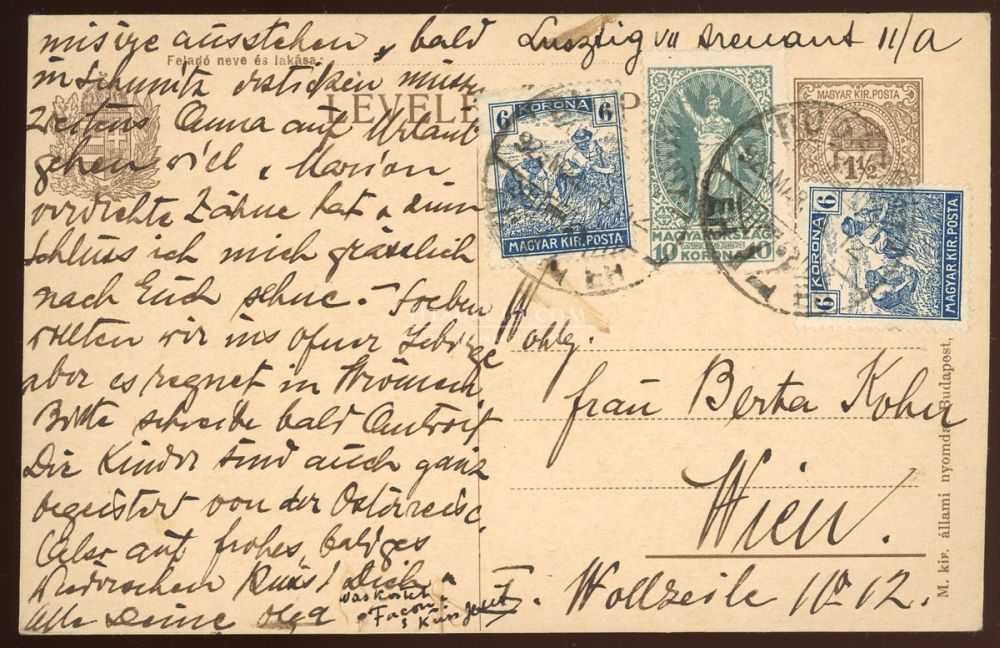 misire ausstehen, bald
Lusztig VII Arenaut 11/a
Feladó neve és lakása:
in Schmutz ersticken muss,
LEVELE
Zweitens Anna auf Urlaub
gehen will, Marion
schlechte Zähne hat & zum
Schluss ich mich grässlich
nach Euch sehne. – Soeben
wollten wir ins ofner Gebirge
aber es regnet in Strömen
Bitte schreibe bald Antwort
Die Kinder sind auch ganz
begeistert von der Österreise.
Also auf frohes, baldges
Wiedersehen Küss! Dich
alle Deine Olga
was kostet
Facon
6 KORONA 6
MAGYAR KIR. POSTA
MAGYARORSZÁG
10 KORONA 10
MAGYAR KIR. POSTA
1½
6 KORONA 6
MAGYAR KIR. POSTA
Wohlg.
Frau Berta Kohn
Wien.
I. Wollzeile No 12.
M. kir. állami nyomda, Budapest,